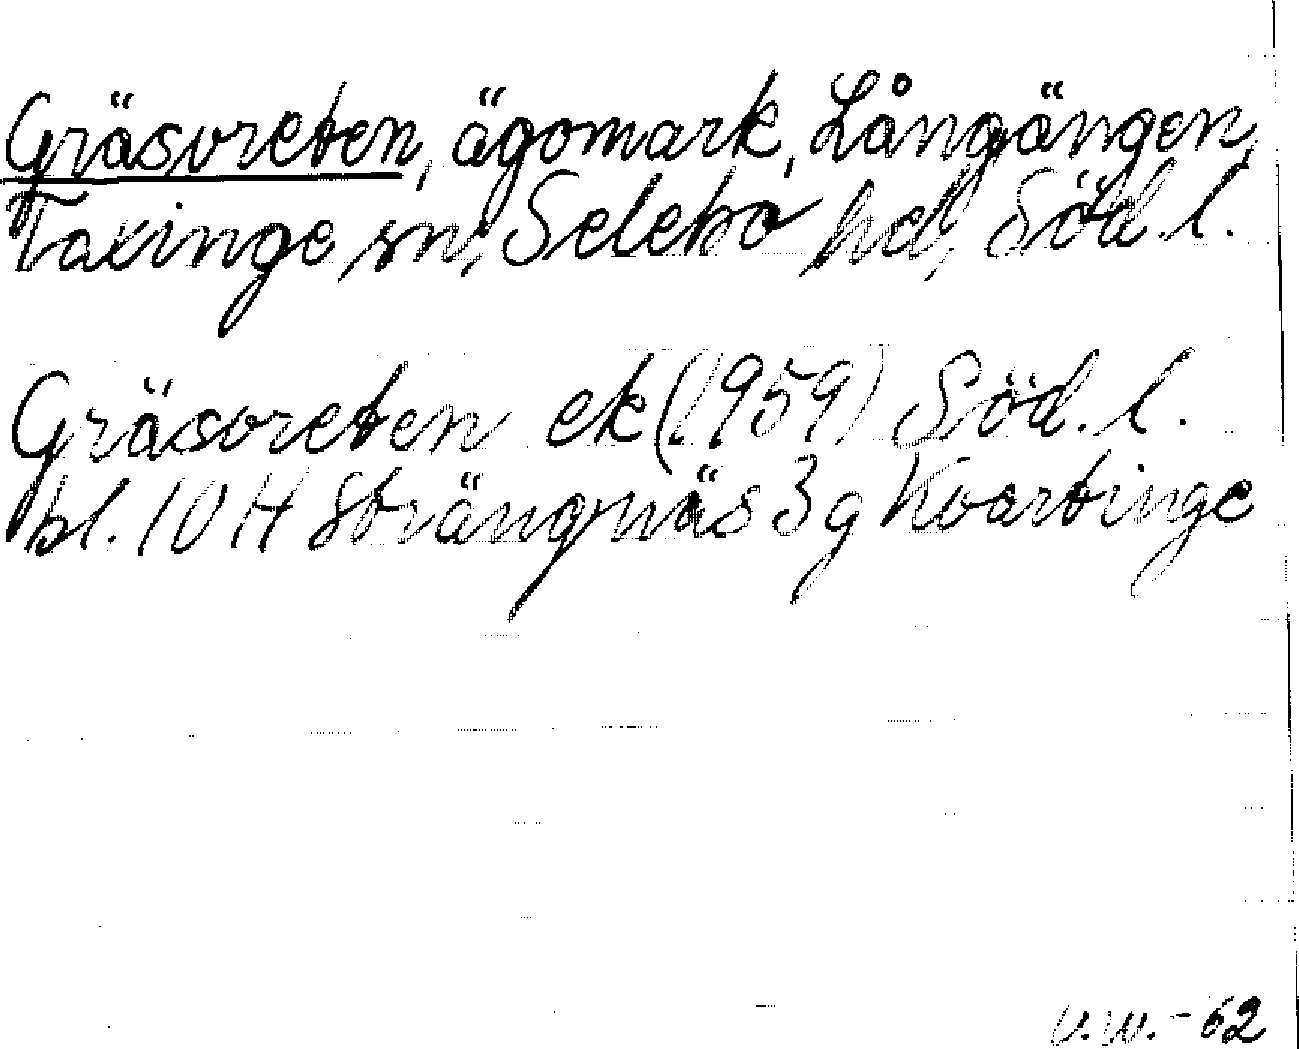 Gräsvreten, ägomark, Långängen,
Taxinge sn, Selebo hd, Söd. l.
Gräsvreten ek (1959) Söd. l.
bl. 10 H Strängnäs 3 g Kvartinge
V.W. - 62